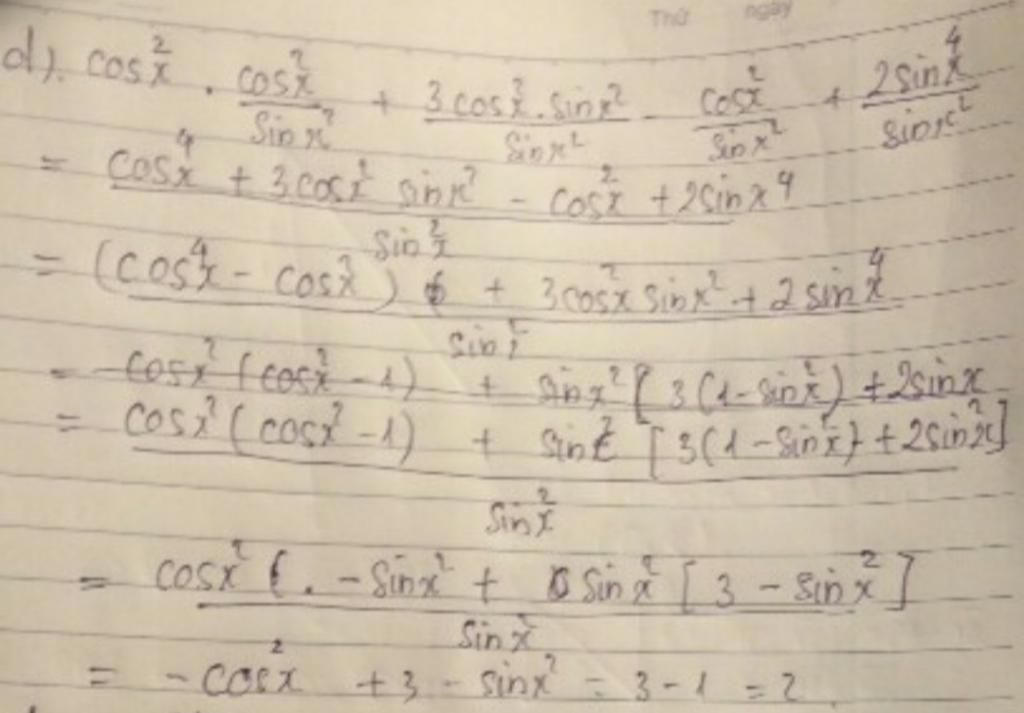 Thứ ngày
d). cos²x . cos²x/sin x² + 3cos²x . sin x²/sin x² - cos²x/sin x² + 2sin⁴x/sin x²
= (cos⁴x + 3cos x² sin x² - cos²x + 2sin x⁴)/sin²x
= ((cos⁴x - cos²x) + 3cos²x sin x² + 2sin⁴x)/sin²x
= cos x² (cos²x - 1) + sin x² [3(1 - sin²x) + 2sin x
= (cos x² (cos x² - 1) + sin² [3(1 - sin²x) + 2sin²x])/sin²x
= (cos x² (. - sin x² + sin x² [3 - sin x²])/sin x²
= - cos²x + 3 - sin x² = 3 - 1 = 2